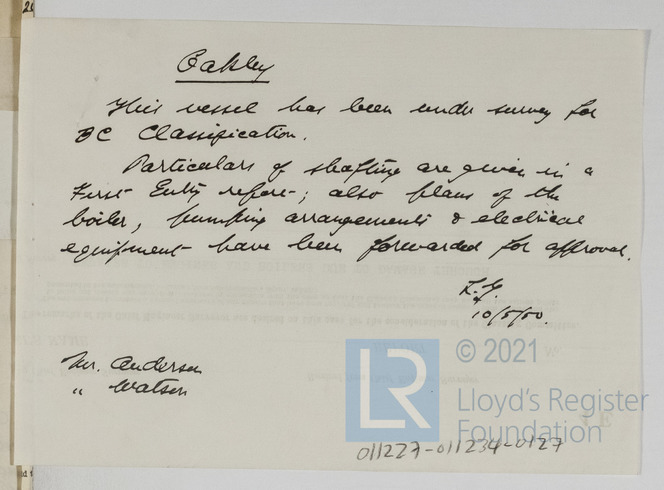 Oakley
This vessel has been under survey for
BC Classification.
Particulars of shafting are given in a
First Entry report; also plans of the
boiler, pumping arrangements & electrical
equipment have been forwarded for approval.
10/5/50.
Mr. Anderson
" Watson
LR
© 2021
Lloyd's Register
Foundation
011227-011234-0127